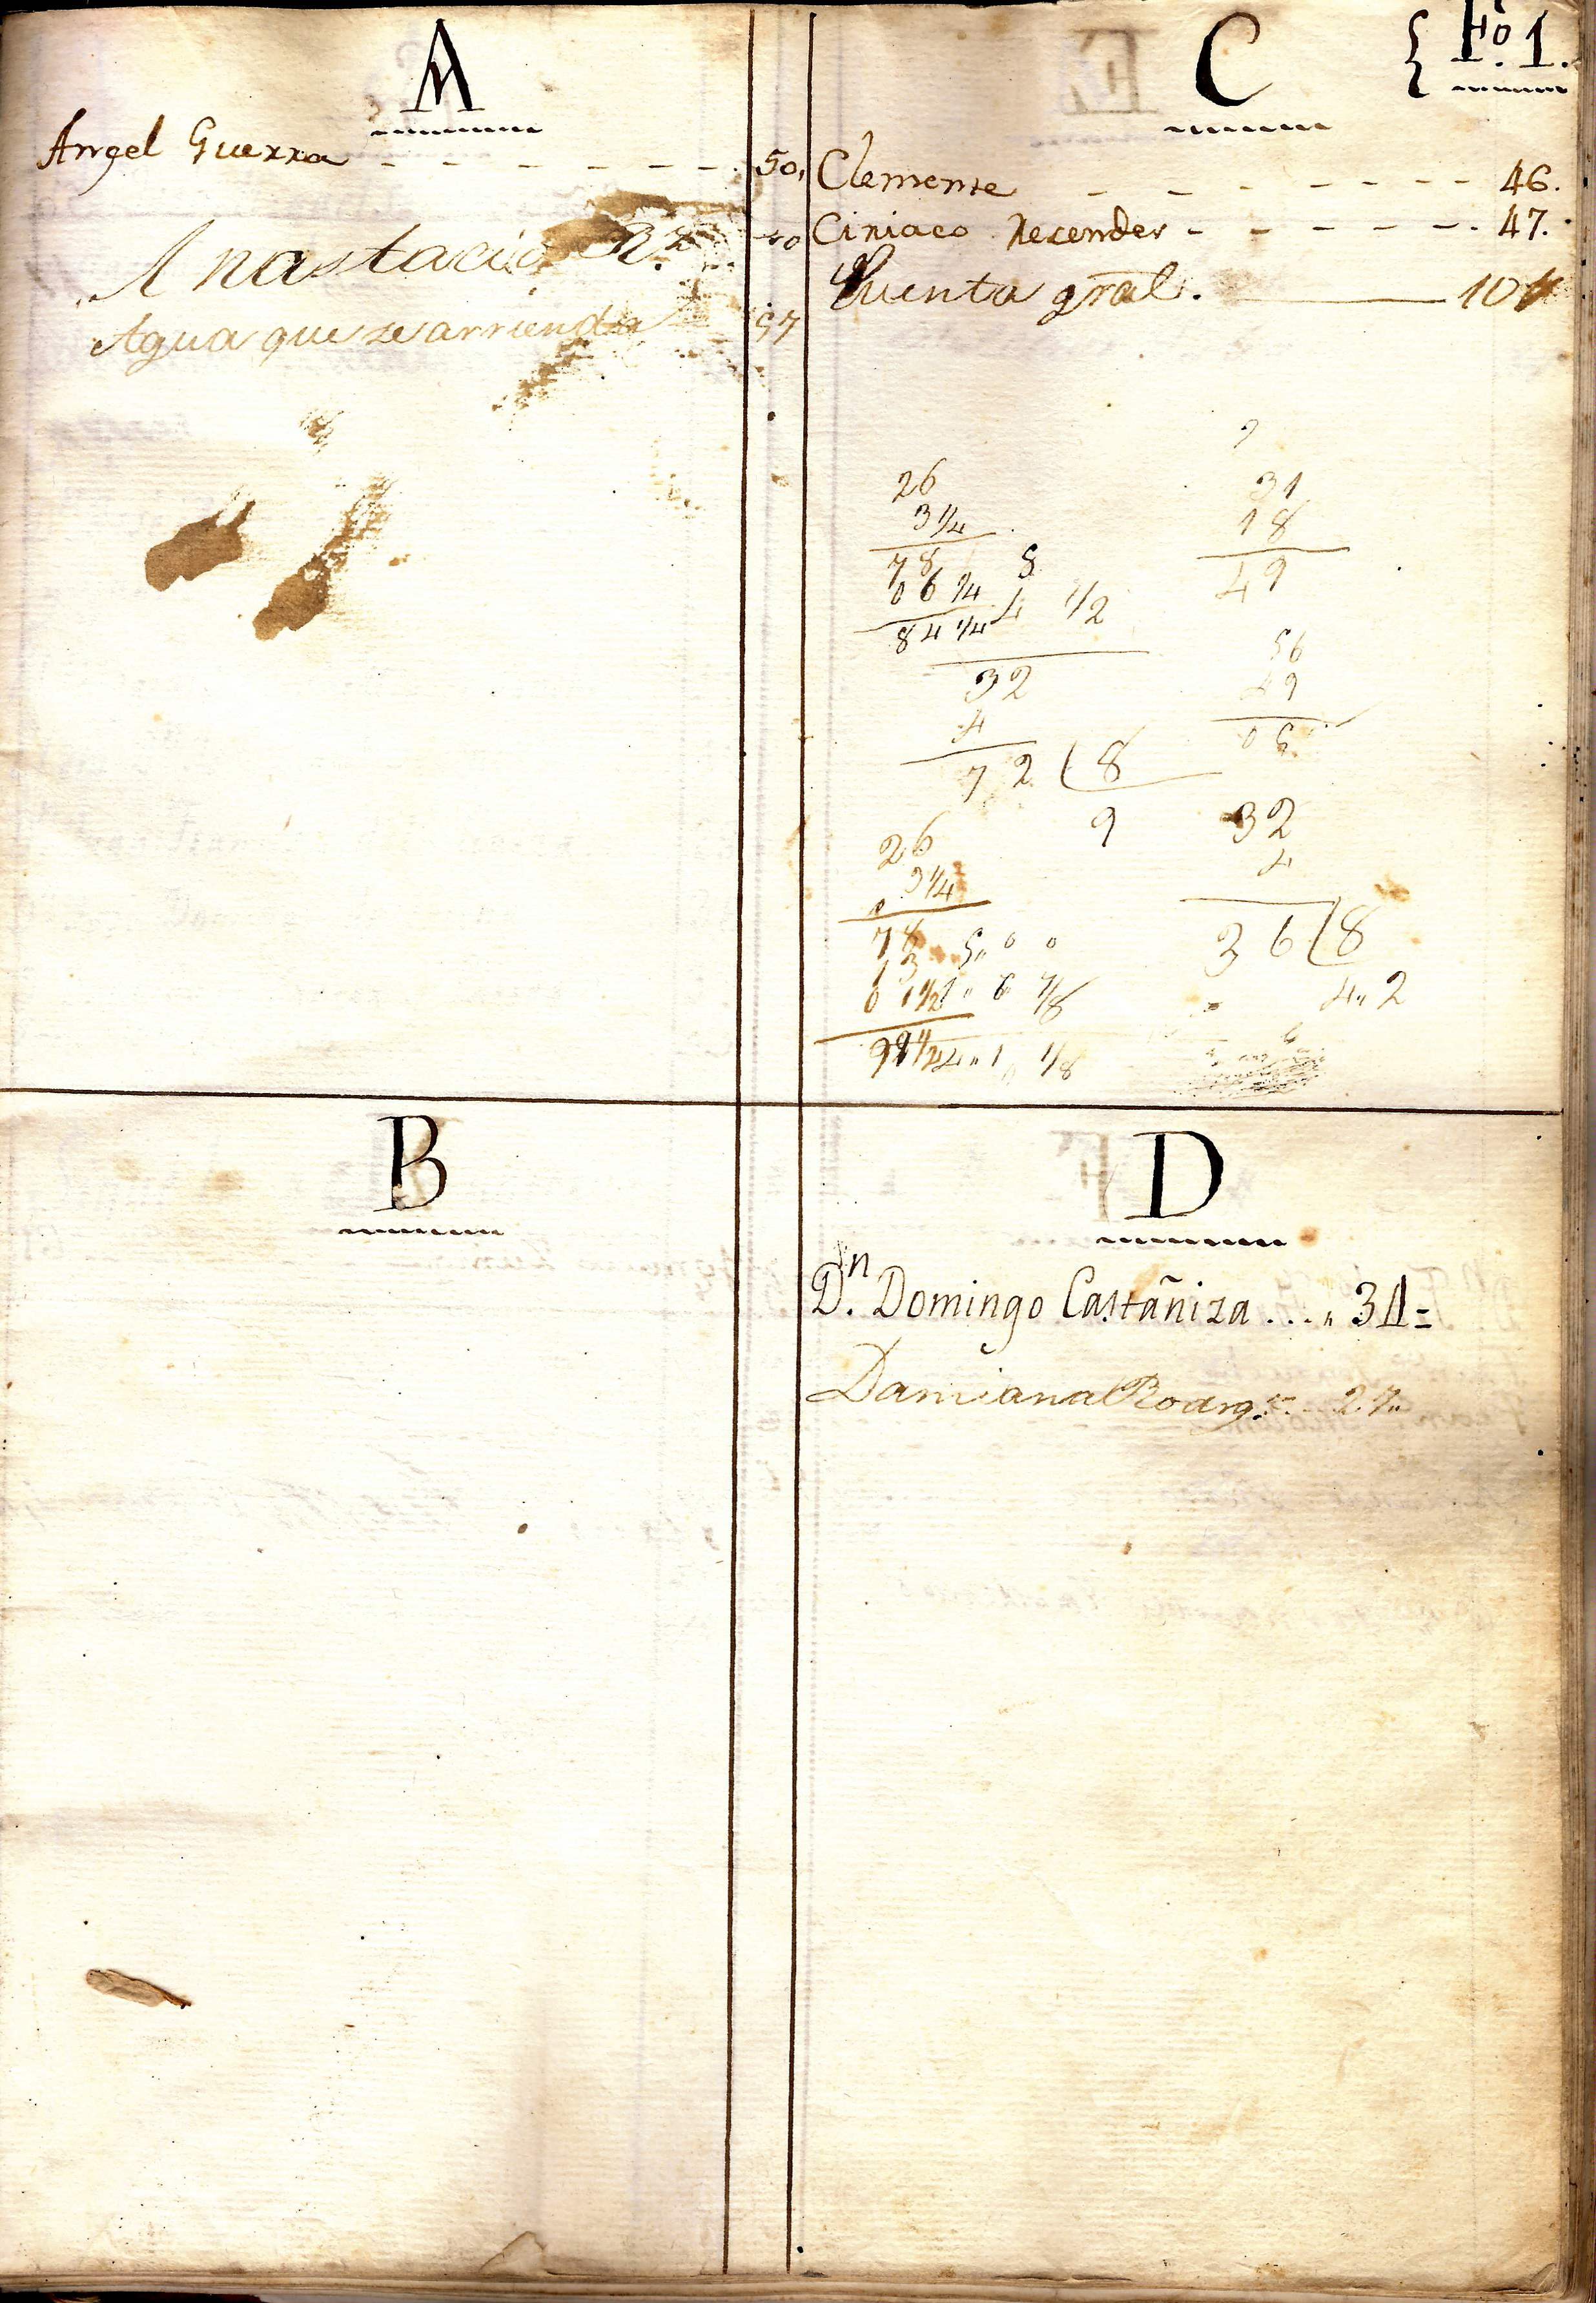 A
Angel Guerra - - - - - - - 50,
Anastacio R.z 40
Agua que se arrienda 57
C
Fº. 1.
Clemente - - - - - - - - 46.
Ciriaco Resender - - - - - - 47.
Quenta gral. 10
26
3 1/4
78
06 1/4
84 1/4
8
4 1/2
32
4
72 ( 8
9
31
18
49
56
49
06
32
4
36 ( 8
4,, 2
26
3 1/4
78
13
0 1 1/2
5,, 0 0
6 7/8
4,, 1 1/8
B
D
Dn. Domingo Castañiza . . . ,, 31=
Damiana Rodrg.z - 27,,